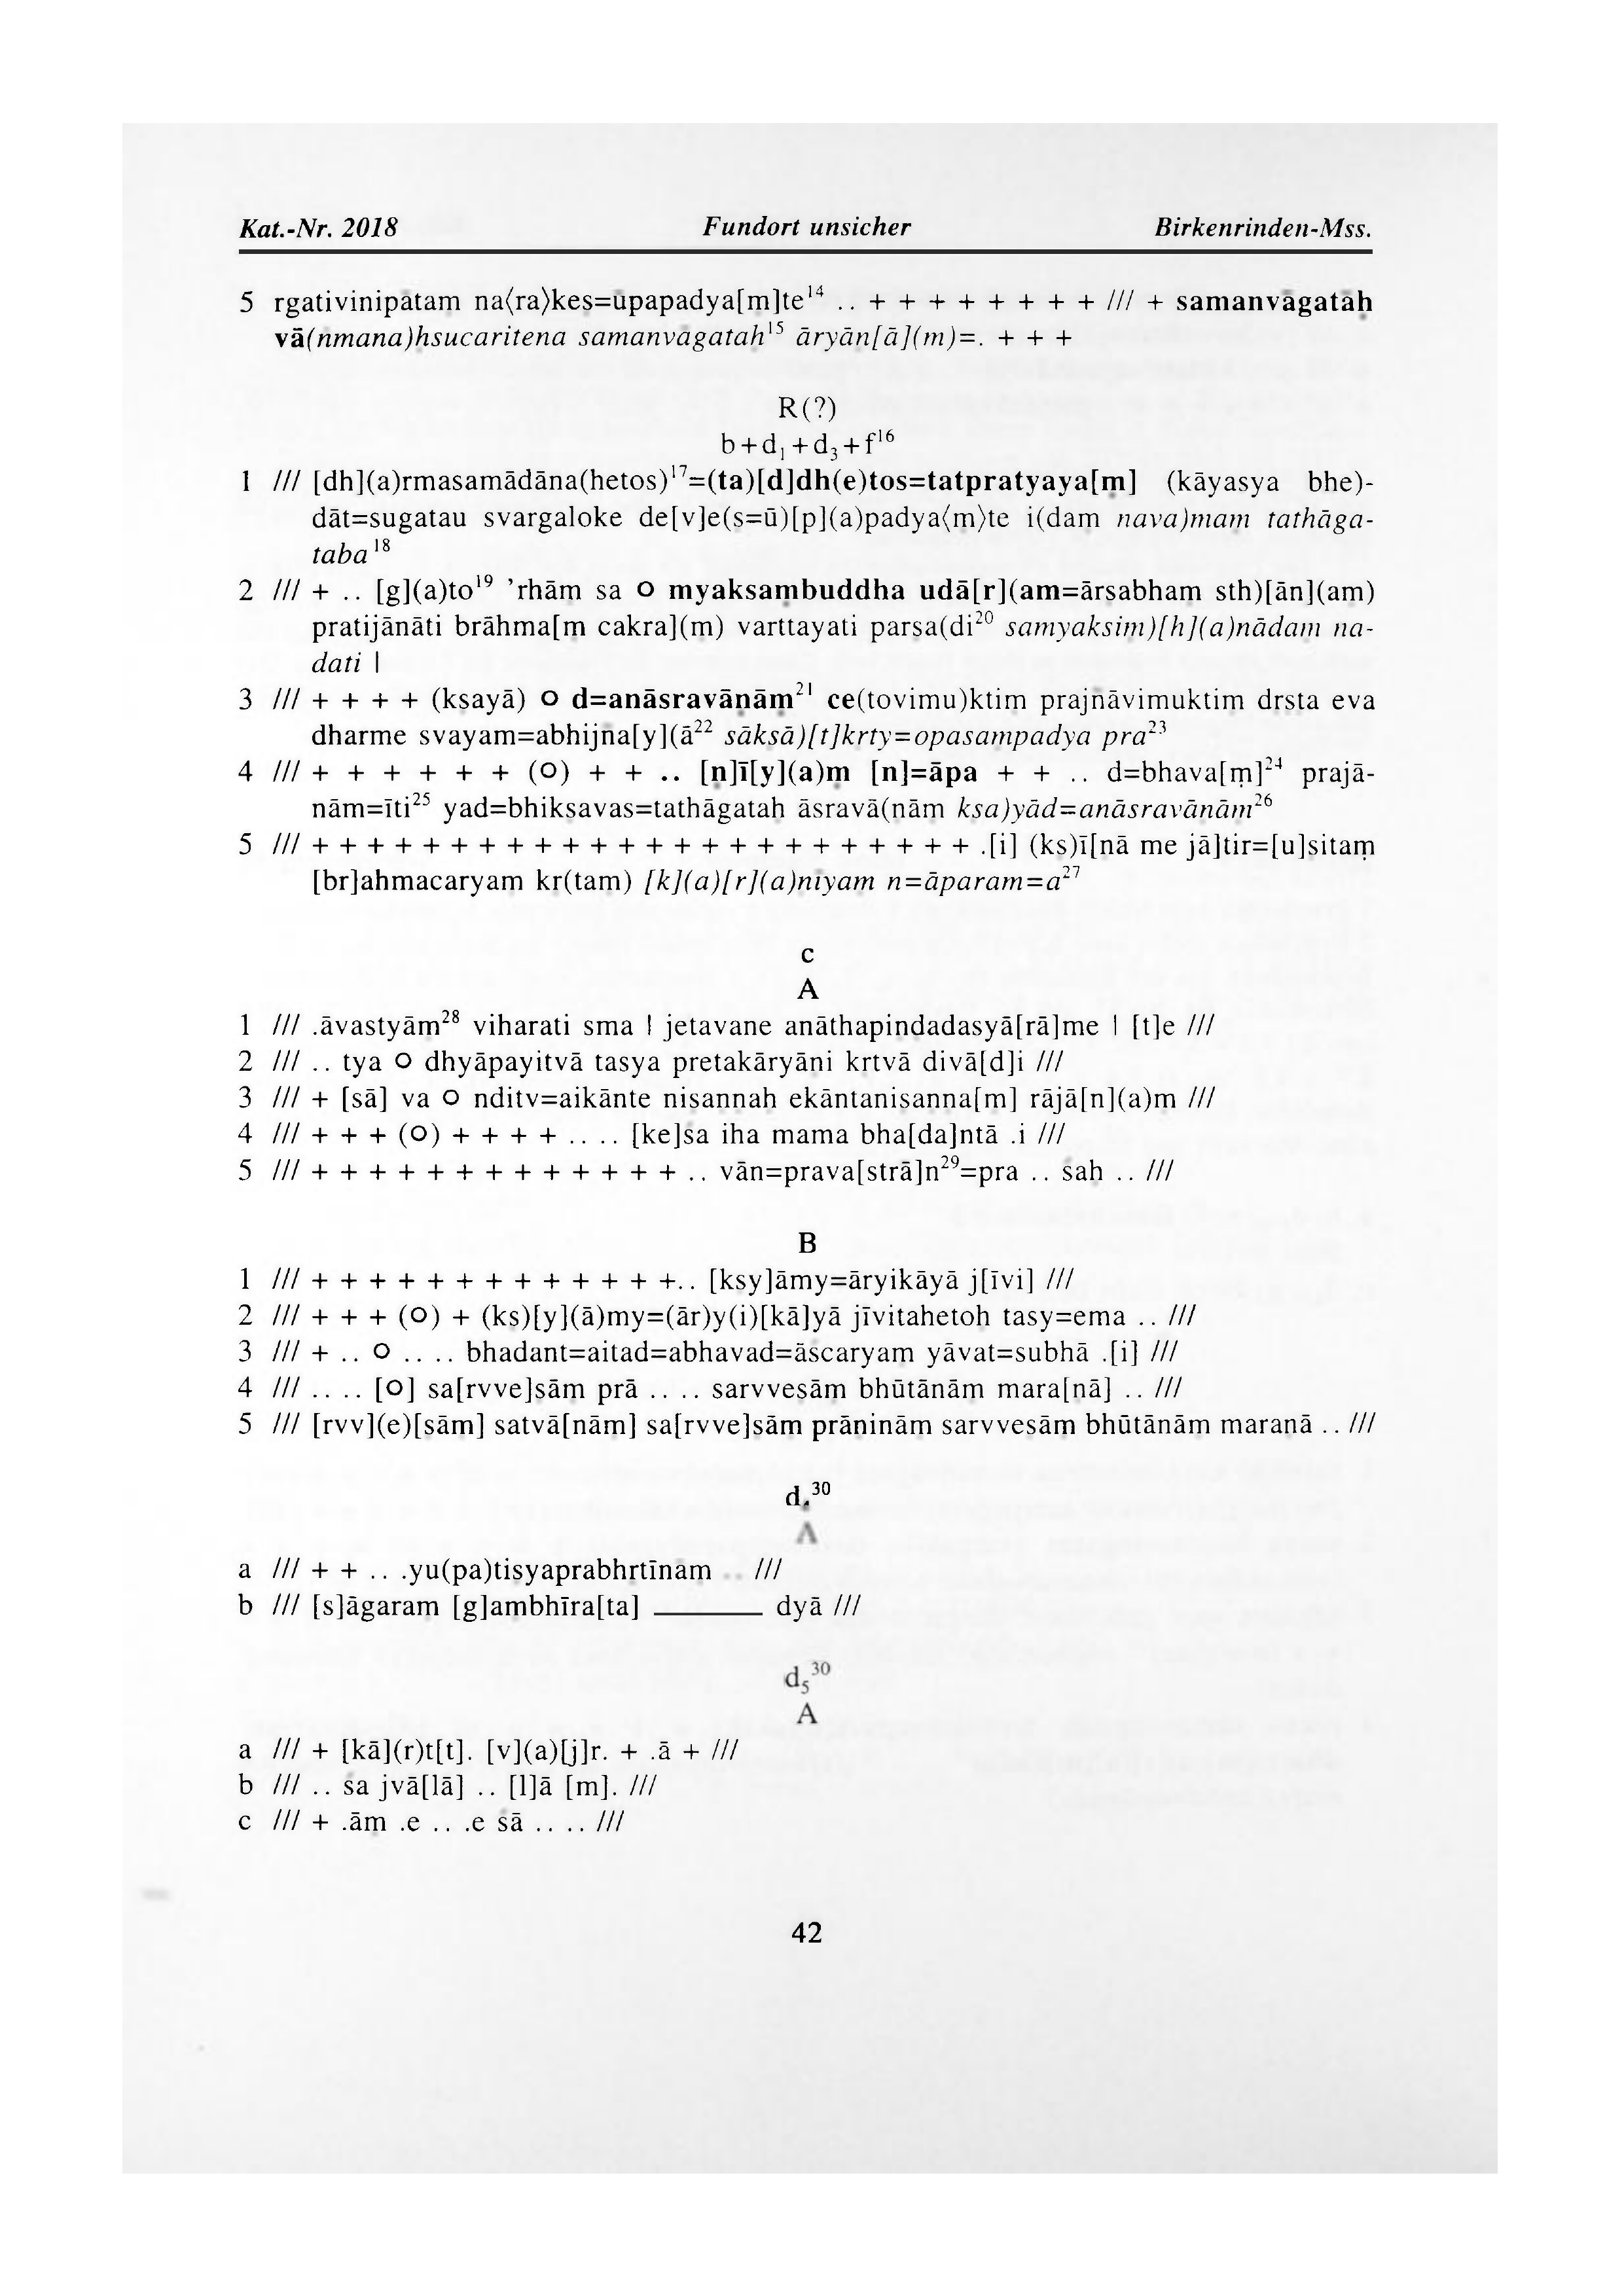 Kat.-Nr. 2018 Fundort unsicher Birkenrinden-Mss.
5 rgativinipātam na⟨ra⟩keṣ=ūpapadya[m]te¹⁴ .. + + + + + + + + /// + samanvāgatāḥ
vā(ṅmana)ḥsucaritena samanvāgataḥ¹⁵ āryāṇ[ā](m)=. + + +
R(?)
b+d₁+d₃+f¹⁶
1 /// [dh](a)rmasamādāna(hetos)¹⁷=(ta)[d]dh(e)tos=tatpratyaya[ṃ] (kāyasya bhe)-
dāt=sugatau svargaloke de[v]e(ṣ=ū)[p](a)padya⟨ṃ⟩te i(dam nava)maṃ tathāga-
taba¹⁸
2 /// + .. [g](a)to¹⁹ ’rhāṃ sa ○ myaksaṃbuddha udā[r](am=ārṣabhaṃ sth)[ān](aṃ)
pratijānāti brāhma[ṃ cakra](ṃ) varttayati parṣa(di²⁰ samyaksiṃ)[h](a)nādaṃ na-
dati |
3 /// + + + + (kṣayā) ○ d=anāsravāṇāṃ²¹ ce(tovimu)ktiṃ prajñāvimuktiṃ dṛṣṭa eva
dharme svayam=abhijña[y](ā²² sākṣā)[t]kṛty=opasaṃpadya pra²³
4 /// + + + + + + (○) + + .. [ṇ]ī[y](a)ṃ [n]=āpa + + .. d=bhava[ṃ]²⁴ prajā-
nām=īti²⁵ yad=bhikṣavas=tathāgataḥ āsravā(ṇāṃ kṣa)yād=anāsravāṇāṃ²⁶
5 /// + + + + + + + + + + + + + + + + + + + + + + + + .[i] (kṣ)ī[ṇā me jā]tir=[u]ṣitaṃ
[br]ahmacaryaṃ kṛ(taṃ) [k](a)[r](a)ṇiyaṃ n=āparam=a²⁷
c
A
1 /// .āvastyāṃ²⁸ viharati sma | jetavane anāthapiṇḍadasyā[rā]me | [t]e ///
2 /// .. tya ○ dhyāpayitvā tasya pretakāryāṇi kṛtvā divā[d]i ///
3 /// + [sā] va ○ nditv=aikānte niṣaṇṇaḥ ekāntaniṣaṇṇa[ṃ] rājā[n](a)ṃ ///
4 /// + + + (○) + + + + .. .. [ke]śa iha mama bha[da]ntā .i ///
5 /// + + + + + + + + + + + + + .. vān=prava[strā]n²⁹=pra .. śaḥ .. ///
B
1 /// + + + + + + + + + + + + +.. [kṣy]āmy=āryikāyā j[īvi] ///
2 /// + + + (○) + (kṣ)[y](ā)my=(ār)y(i)[kā]yā jīvitahetoḥ tasy=ema .. ///
3 /// + .. ○ .. .. bhadant=aitad=abhavad=āścaryaṃ yāvat=subhā .[i] ///
4 /// .. .. [○] sa[rvve]ṣāṃ prā .. .. sarvveṣāṃ bhūtānāṃ mara[ṇā] .. ///
5 /// [rvv](e)[ṣāṃ] satvā[nāṃ] sa[rvve]ṣāṃ prāṇināṃ sarvveṣāṃ bhūtānāṃ maraṇā .. ///
d₄³⁰
A
a /// + + .. .yu(pa)tiṣyaprabhṛtīnāṃ .. ///
b /// [s]āgaraṃ [g]ambhīra[ta] ——— dyā ///
d₅³⁰
A
a /// + [kā](r)t[t]. [v](a)[j]r. + .ā + ///
b /// .. śa jvā[lā] .. [l]ā [m]. ///
c /// + .āṃ .e .. .e śā .. .. ///
42